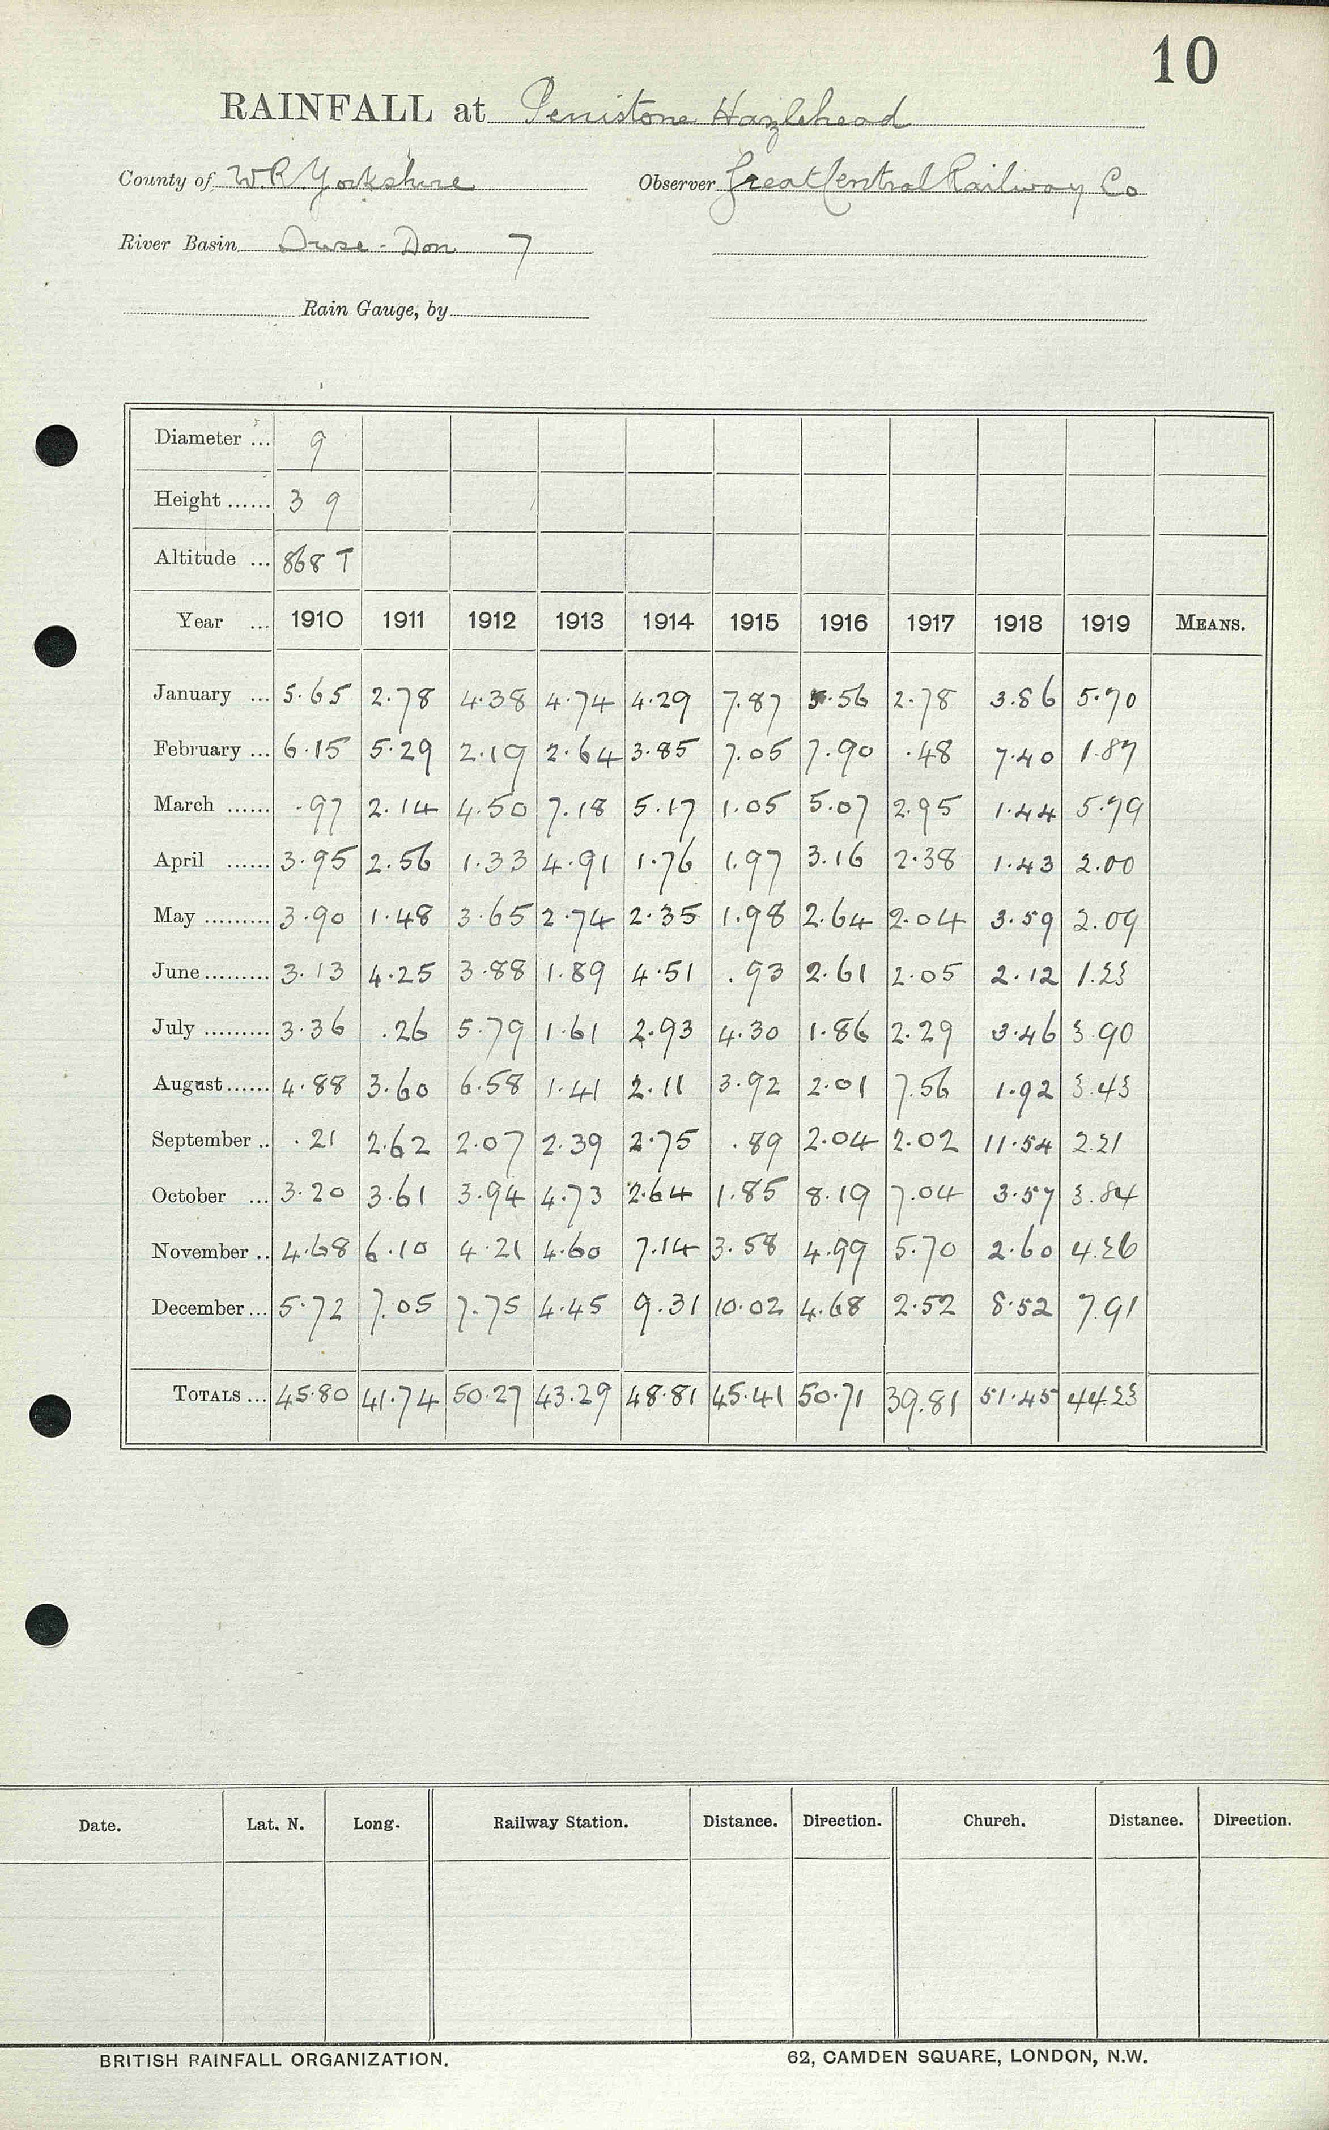 10
RAINFALL at Penistone Hazlehead
County of W.R. Yorkshire Observer Great Central Railway Co
River Basin Ouse - Don 7
Rain Gauge, by
Diameter ... 9
Height ...... 3 9
Altitude ... 868 T
Year ... 1910 1911 1912 1913 1914 1915 1916 1917 1918 1919 MEANS.
January ... 5.65 2.78 4.38 4.74 4.29 7.87 5.56 2.78 3.86 5.70
February ... 6.15 5.29 2.19 2.64 3.85 7.05 7.90 .48 7.40 1.87
March ...... .97 2.14 4.50 7.18 5.17 1.05 5.07 2.95 1.44 5.79
April ...... 3.95 2.56 1.33 4.91 1.76 1.97 3.16 2.38 1.43 2.00
May ......... 3.90 1.48 3.65 2.74 2.35 1.98 2.64 2.04 3.59 2.09
June ......... 3.13 4.25 3.88 1.89 4.51 .93 2.61 2.05 2.12 1.23
July ......... 3.36 .26 5.79 1.61 2.93 4.30 1.86 2.29 3.46 3.90
August ...... 4.88 3.60 6.58 1.41 2.11 3.92 2.01 7.56 1.92 3.43
September .. .21 2.62 2.07 2.39 2.75 .89 2.04 2.02 11.54 2.21
October ... 3.20 3.61 3.94 4.73 2.64 1.85 8.19 7.04 3.57 3.84
November .. 4.68 6.10 4.21 4.60 7.14 3.58 4.99 5.70 2.60 4.26
December ... 5.72 7.05 7.75 4.45 9.31 10.02 4.68 2.52 8.52 7.91
TOTALS ... 45.80 41.74 50.27 43.29 48.81 45.41 50.71 39.81 51.45 44.23
Date. Lat. N. Long. Railway Station. Distance. Direction. Church. Distance. Direction.
BRITISH RAINFALL ORGANIZATION. 62, CAMDEN SQUARE, LONDON, N.W.